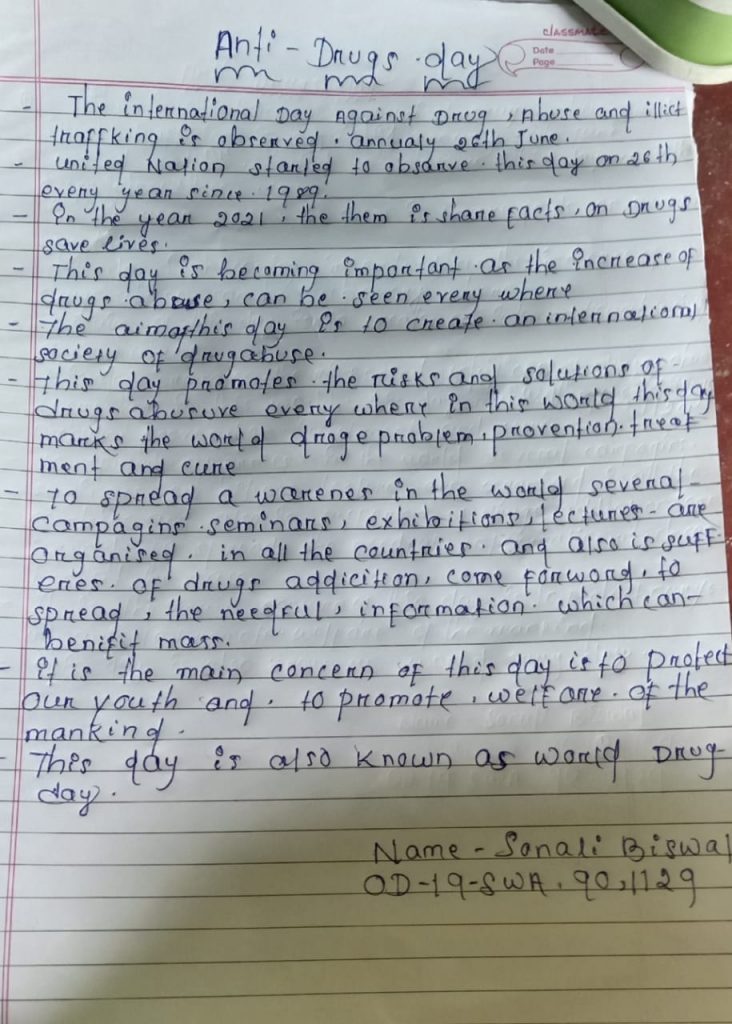 Anti - Drugs day
CLASSMATE
Date
Page
- The international Day Against Drug, Abuse and illict
traffking is observed. annualy 26th June.
- united Nation started to observe this day on 26th
every year since. 1989.
- In the year 2021, the them is share facts, on Drugs
save lives.
- This day is becoming important as the increase of
drugs abuse, can be seen every where
- The aim of this day is to create an international
society of drug abuse.
- This day promotes the risks and solutions of
drugs abusure every where in this world this day
marks the world droge problem, provention. treat
ment and cure
- To spread a warenes in the world several-
campagins seminars, exhibitions, lectures - are
organised. in all the countries. and also is suff-
eries. of drugs addicition, come forword, to
spread, the needful, information. which can-
benifit mass.
- it is the main concern of this day is to protect
our youth and. to promote, welfare. of the
manking.
- This day is also known as world Drug-
day.
Name - Sonali Biswal
OD-19-SWA. 90,1129